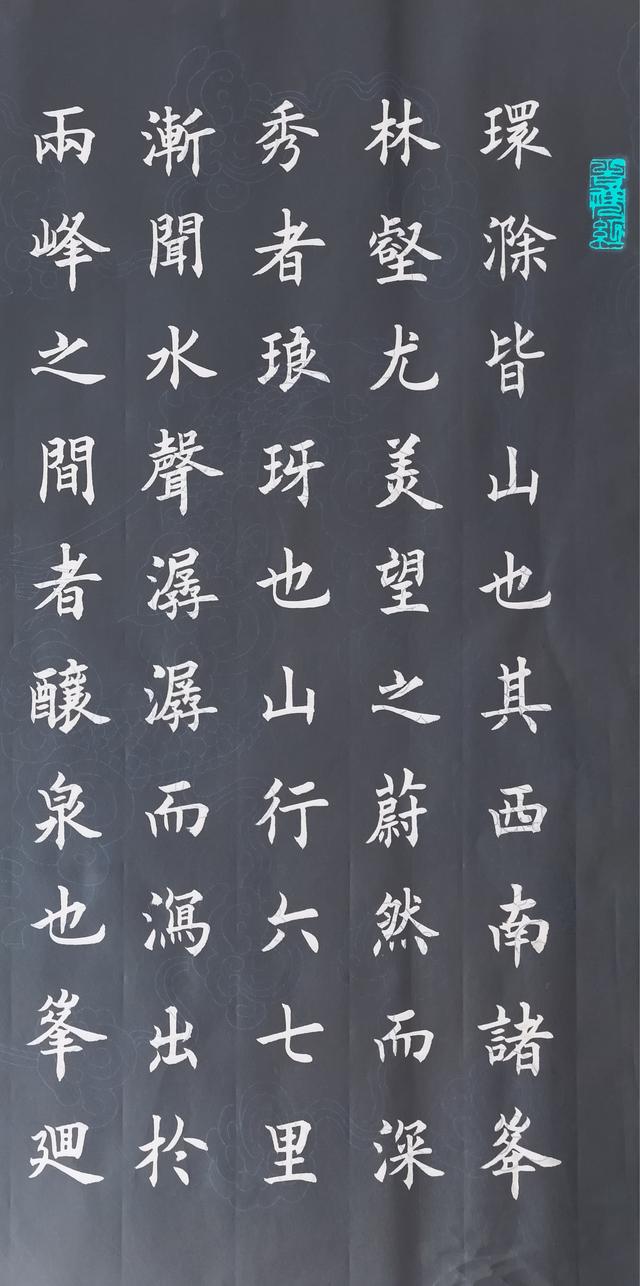 環滁皆山也其西南諸峯
林壑尤美望之蔚然而深
秀者琅玡也山行六七里
漸聞水聲潺潺而瀉出扵
兩峰之間者釀泉也峯廻